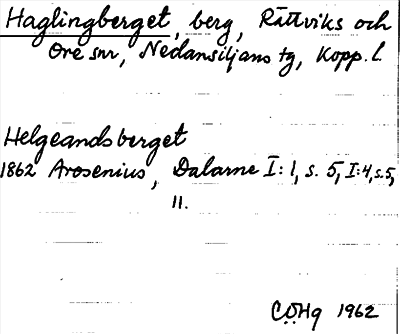 Haglingberget, berg, Rättviks och
Ore snr, Nedansiljans tg, Kopp. l.
Helgeandsberget
1862 Arosenius, Dalarne I: 1, s. 5, I:4, s.5,
11.
CÖHg 1962